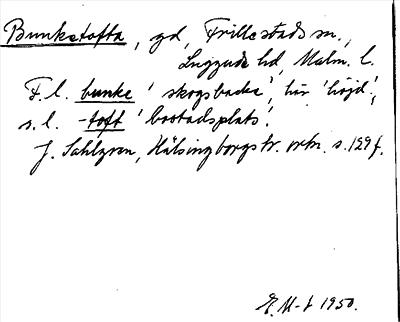 Bunketofta, gd, Frillestads sn.,
Luggude hd, Malm. l.
F. l. bunke 'skogsbacke', här 'höjd',
s. l. -toft 'bostadsplats'.
J. Sahlgren, Hälsingborgstr. ortn. s. 129 f.
E. M-t 1950.